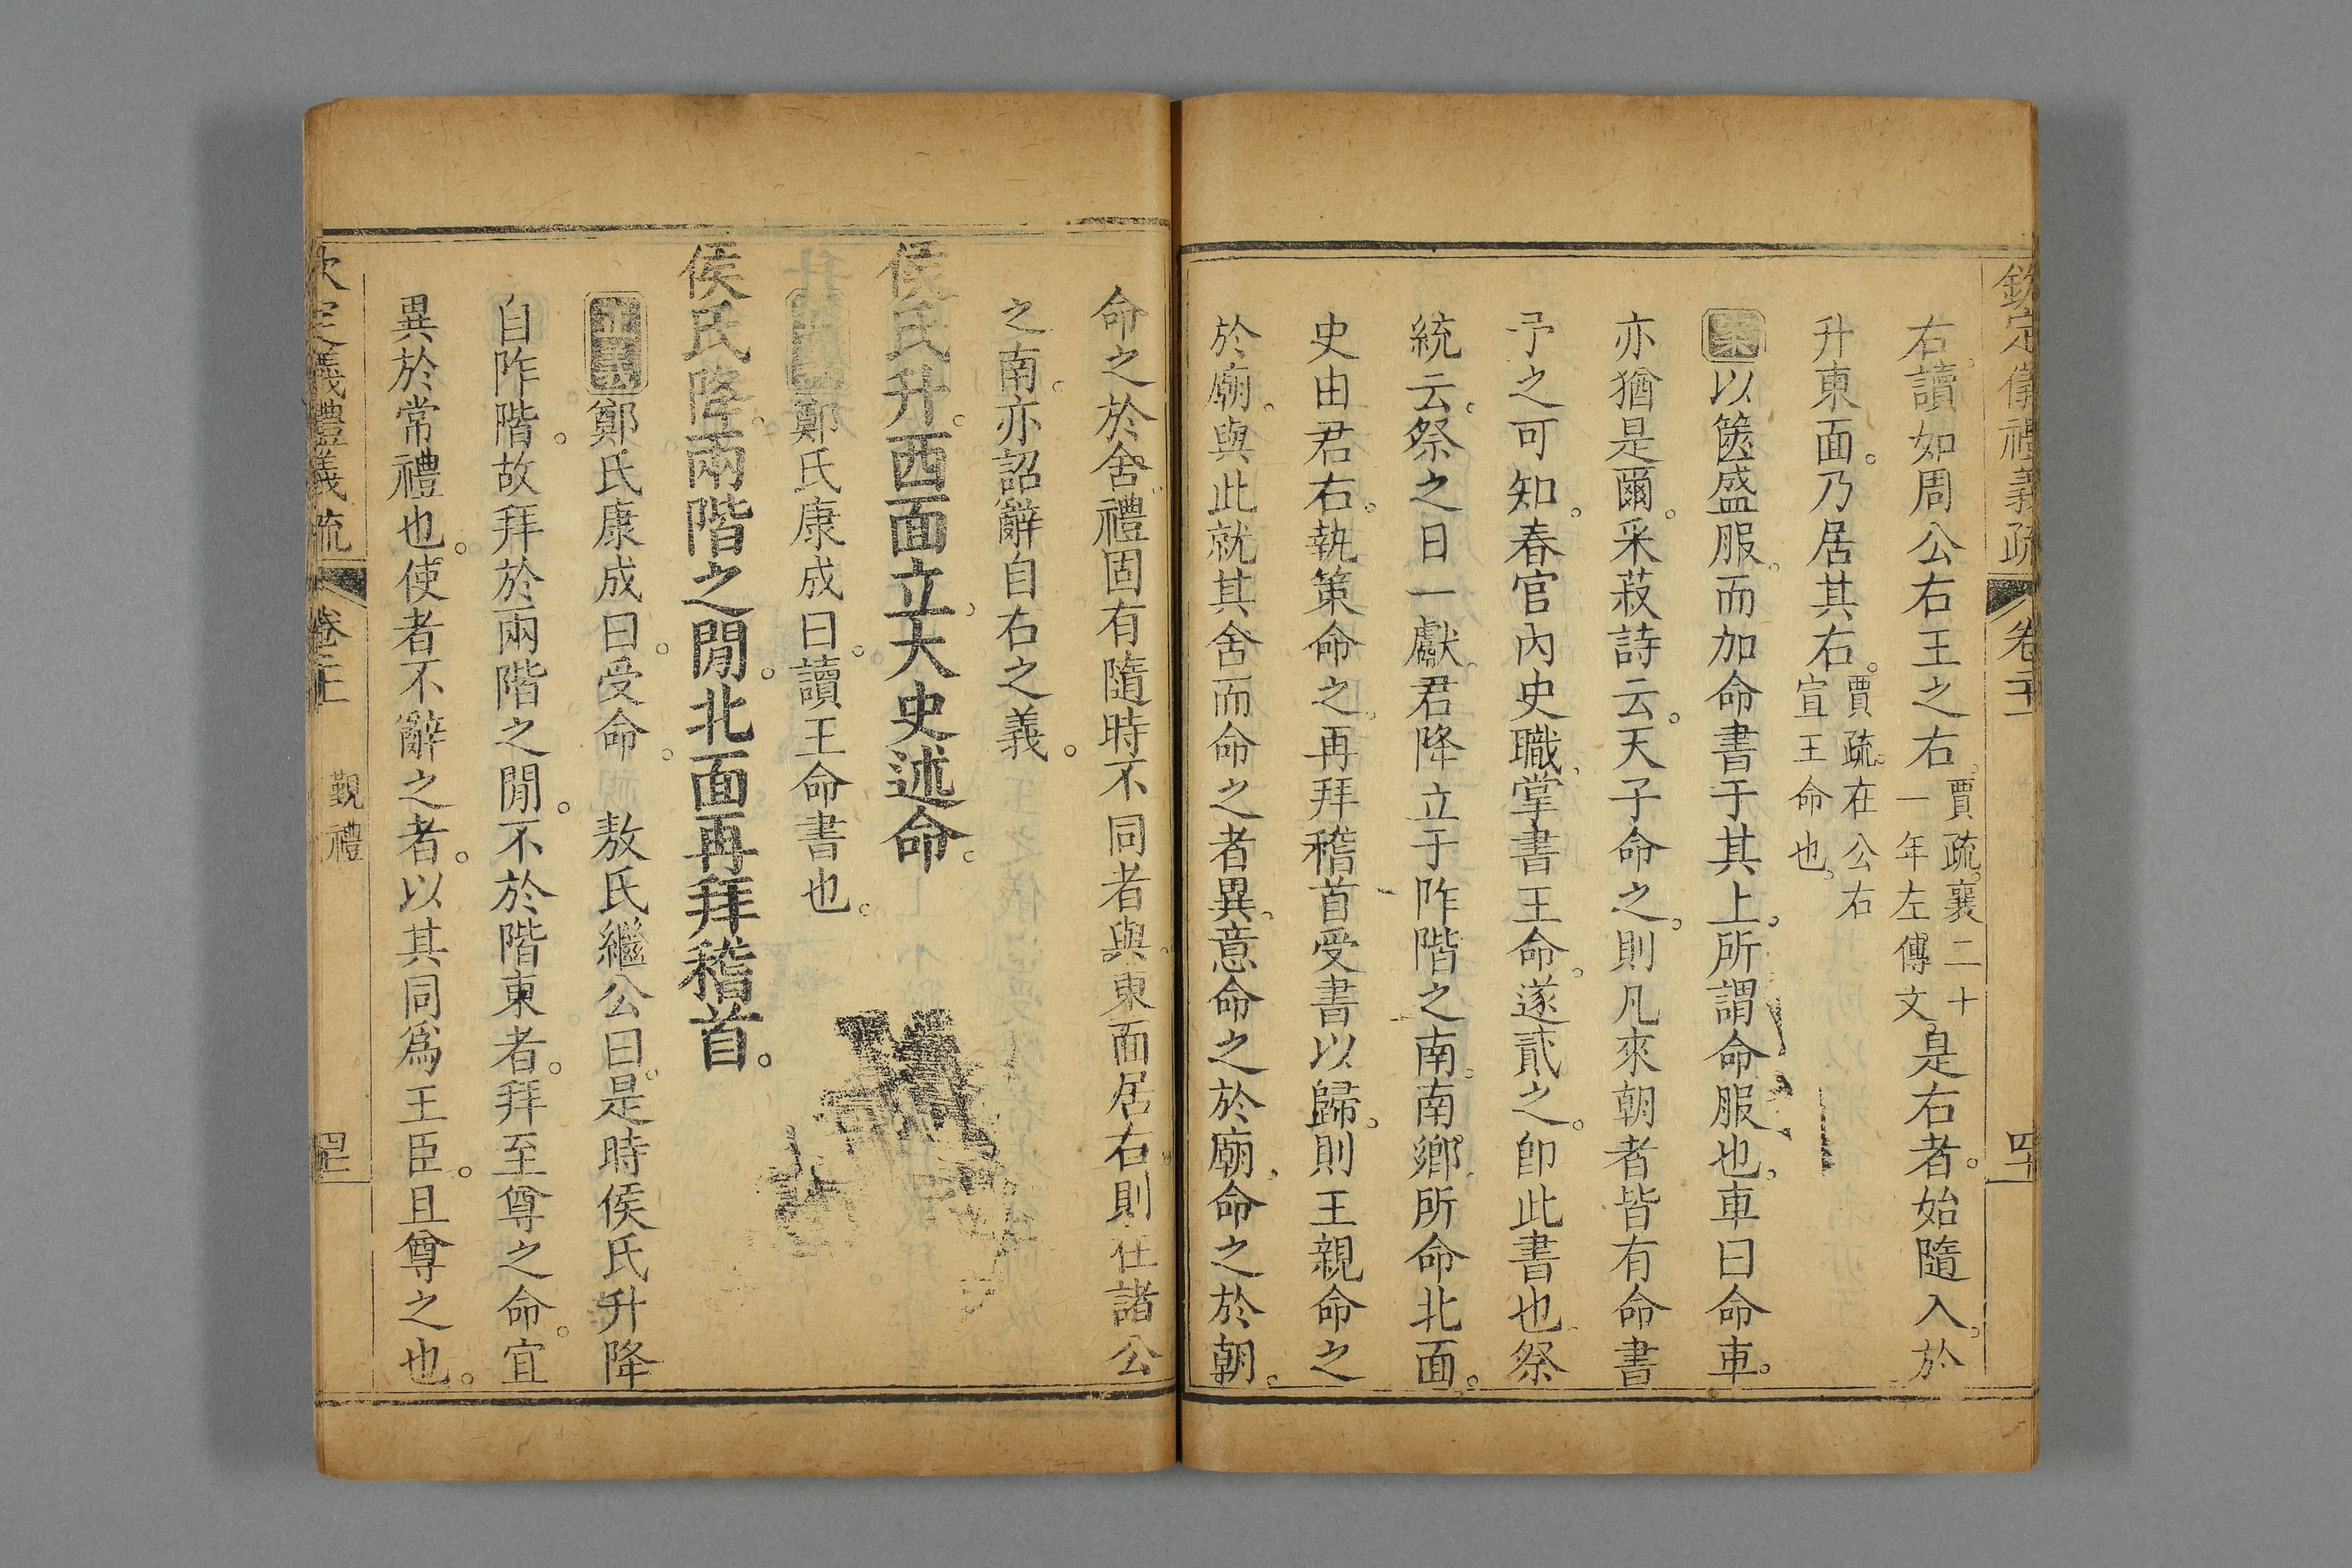 欽定儀禮義疏 卷二十一 四十
右讀如周公右王之右賈疏襄二十一年左傳文是右者始隨入於
升東面乃居其右賈疏在公右宣王命也
案以篋盛服而加命書于其上所謂命服也車曰命車
亦猶是爾采菽詩云天子命之則凡來朝者皆有命書
予之可知春官內史職掌書王命遂貳之卽此書也祭
統云祭之日一獻君降立于阼階之南南鄉所命北面
史由君右執策命之再拜稽首受書以歸則王親命之
於廟與此就其舍而命之者異意命之於廟命之於朝
命之於舍禮固有隨時不同者與東面居右則在諸公
之南亦詔辭自右之義
侯氏升西面立大史述命
鄭氏康成曰讀王命書也
侯氏降兩階之閒北面再拜稽首
鄭氏康成曰受命 敖氏繼公曰是時侯氏升降
自阼階故拜於兩階之閒不於階東者拜至尊之命宜
異於常禮也使者不辭之者以其同爲王臣且尊之也
欽定儀禮義疏 卷二十一 覲禮